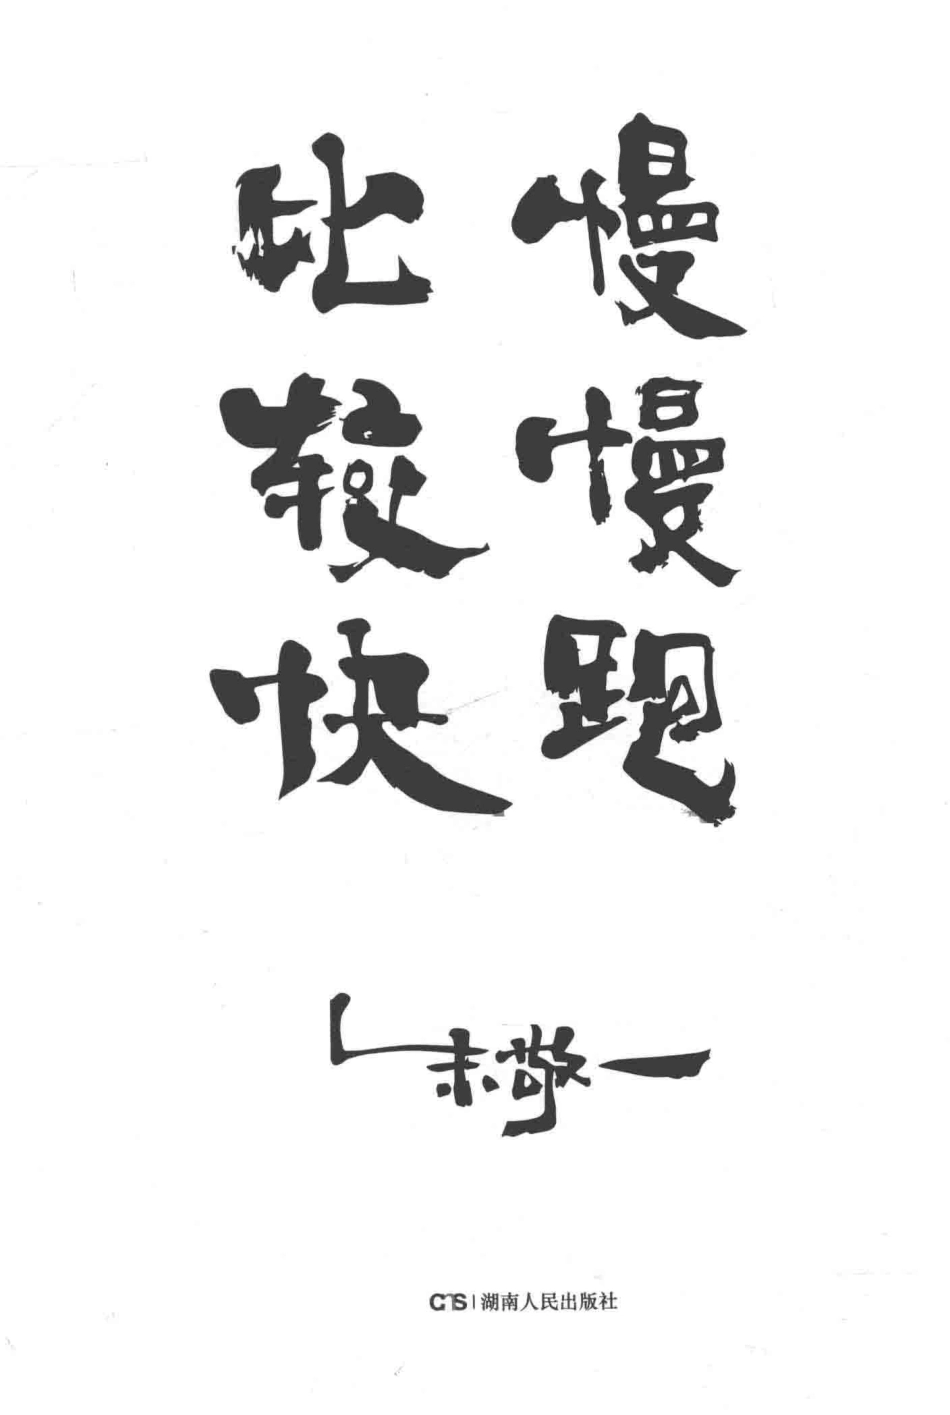 慢慢跑
比较快
朱敬一
CNS | 湖南人民出版社